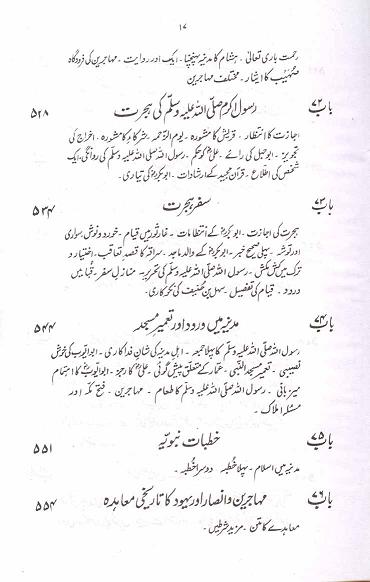 ۱۷
رحمت باری تعالیٰ ۔ ہشام کا مدینہ پہنچنا ۔ ایک اور روایت ۔ مہاجرین کی فرودگاہ
صہیبؓ کا ایثار ۔ مختلف مہاجرین
باب ۷۲ رسول اکرم صلی اللہ علیہ وسلم کی ہجرت ۵۲۸
اجازت کا انتظار ۔ قریش کا مشورہ ۔ یوم الزحمہ ۔ شرکاء کا مشورہ ۔ اخراج کی
تجویز ۔ ابوجہل کی رائے ۔ علیؓ کو حکم ۔ رسول اللہ صلی اللہ علیہ وسلم کی روانگی ۔ ایک
شخص کی اطلاع ۔ قرآن مجید کے ارشادات ۔ ابوبکرؓ کی تیاری ۔
باب ۷۳ سفر ہجرت ۵۳۴
ہجرت کی اجازت ۔ ابوبکرؓ کے انتظامات ۔ غار ثور میں قیام ۔ خورد و نوش، سواری
اور توشہ ۔ پہلی صحیح خبر ۔ ابوبکرؓ کے والد ماجد ۔ سراقہ کا قصد تعاقب ۔ اختیار و
ترک میں کش مکش ۔ رسول اللہ صلی اللہ علیہ وسلم کی تحریر ۔ منازل سفر ۔ قبا میں
ورود ۔ قیام کی تفصیل ۔ سہل بن حنیف کی نکوکاری ۔
باب ۷۴ مدینہ میں ورود اور تعمیر مسجد ۵۴۴
رسول اللہ صلی اللہ علیہ وسلم کا پہلا جمعہ ۔ اہل مدینہ کی شان فداکاری ۔ ابوایوبؓ کی خوش
نصیبی ۔ تعمیر مسجد النبی ۔ عمارؓ کے متعلق پیش گوئی ۔ علیؓ کا رجز ۔ ابوایوبؓ کا اہتمام
میزبانی ۔ رسول اللہ صلی اللہ علیہ وسلم کا طعام ۔ مہاجرین ۔ فتح مکہ اور
مسئلہ املاک ۔
باب ۷۵ خطبات نبویہ ۵۵۱
مدینہ میں اسلام ۔ پہلا خطبہ ۔ دوسرا خطبہ ۔
باب ۷۶ مہاجرین و انصار اور یہود کا تاریخی معاہدہ ۵۵۴
معاہدے کا متن ۔ مزید شرطیں ۔